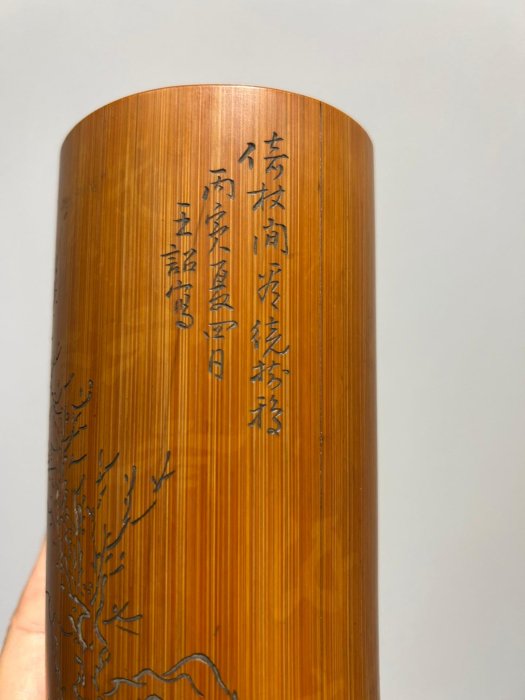 倚杖閒看繞樹鴉
丙寅夏四日
王詔寫